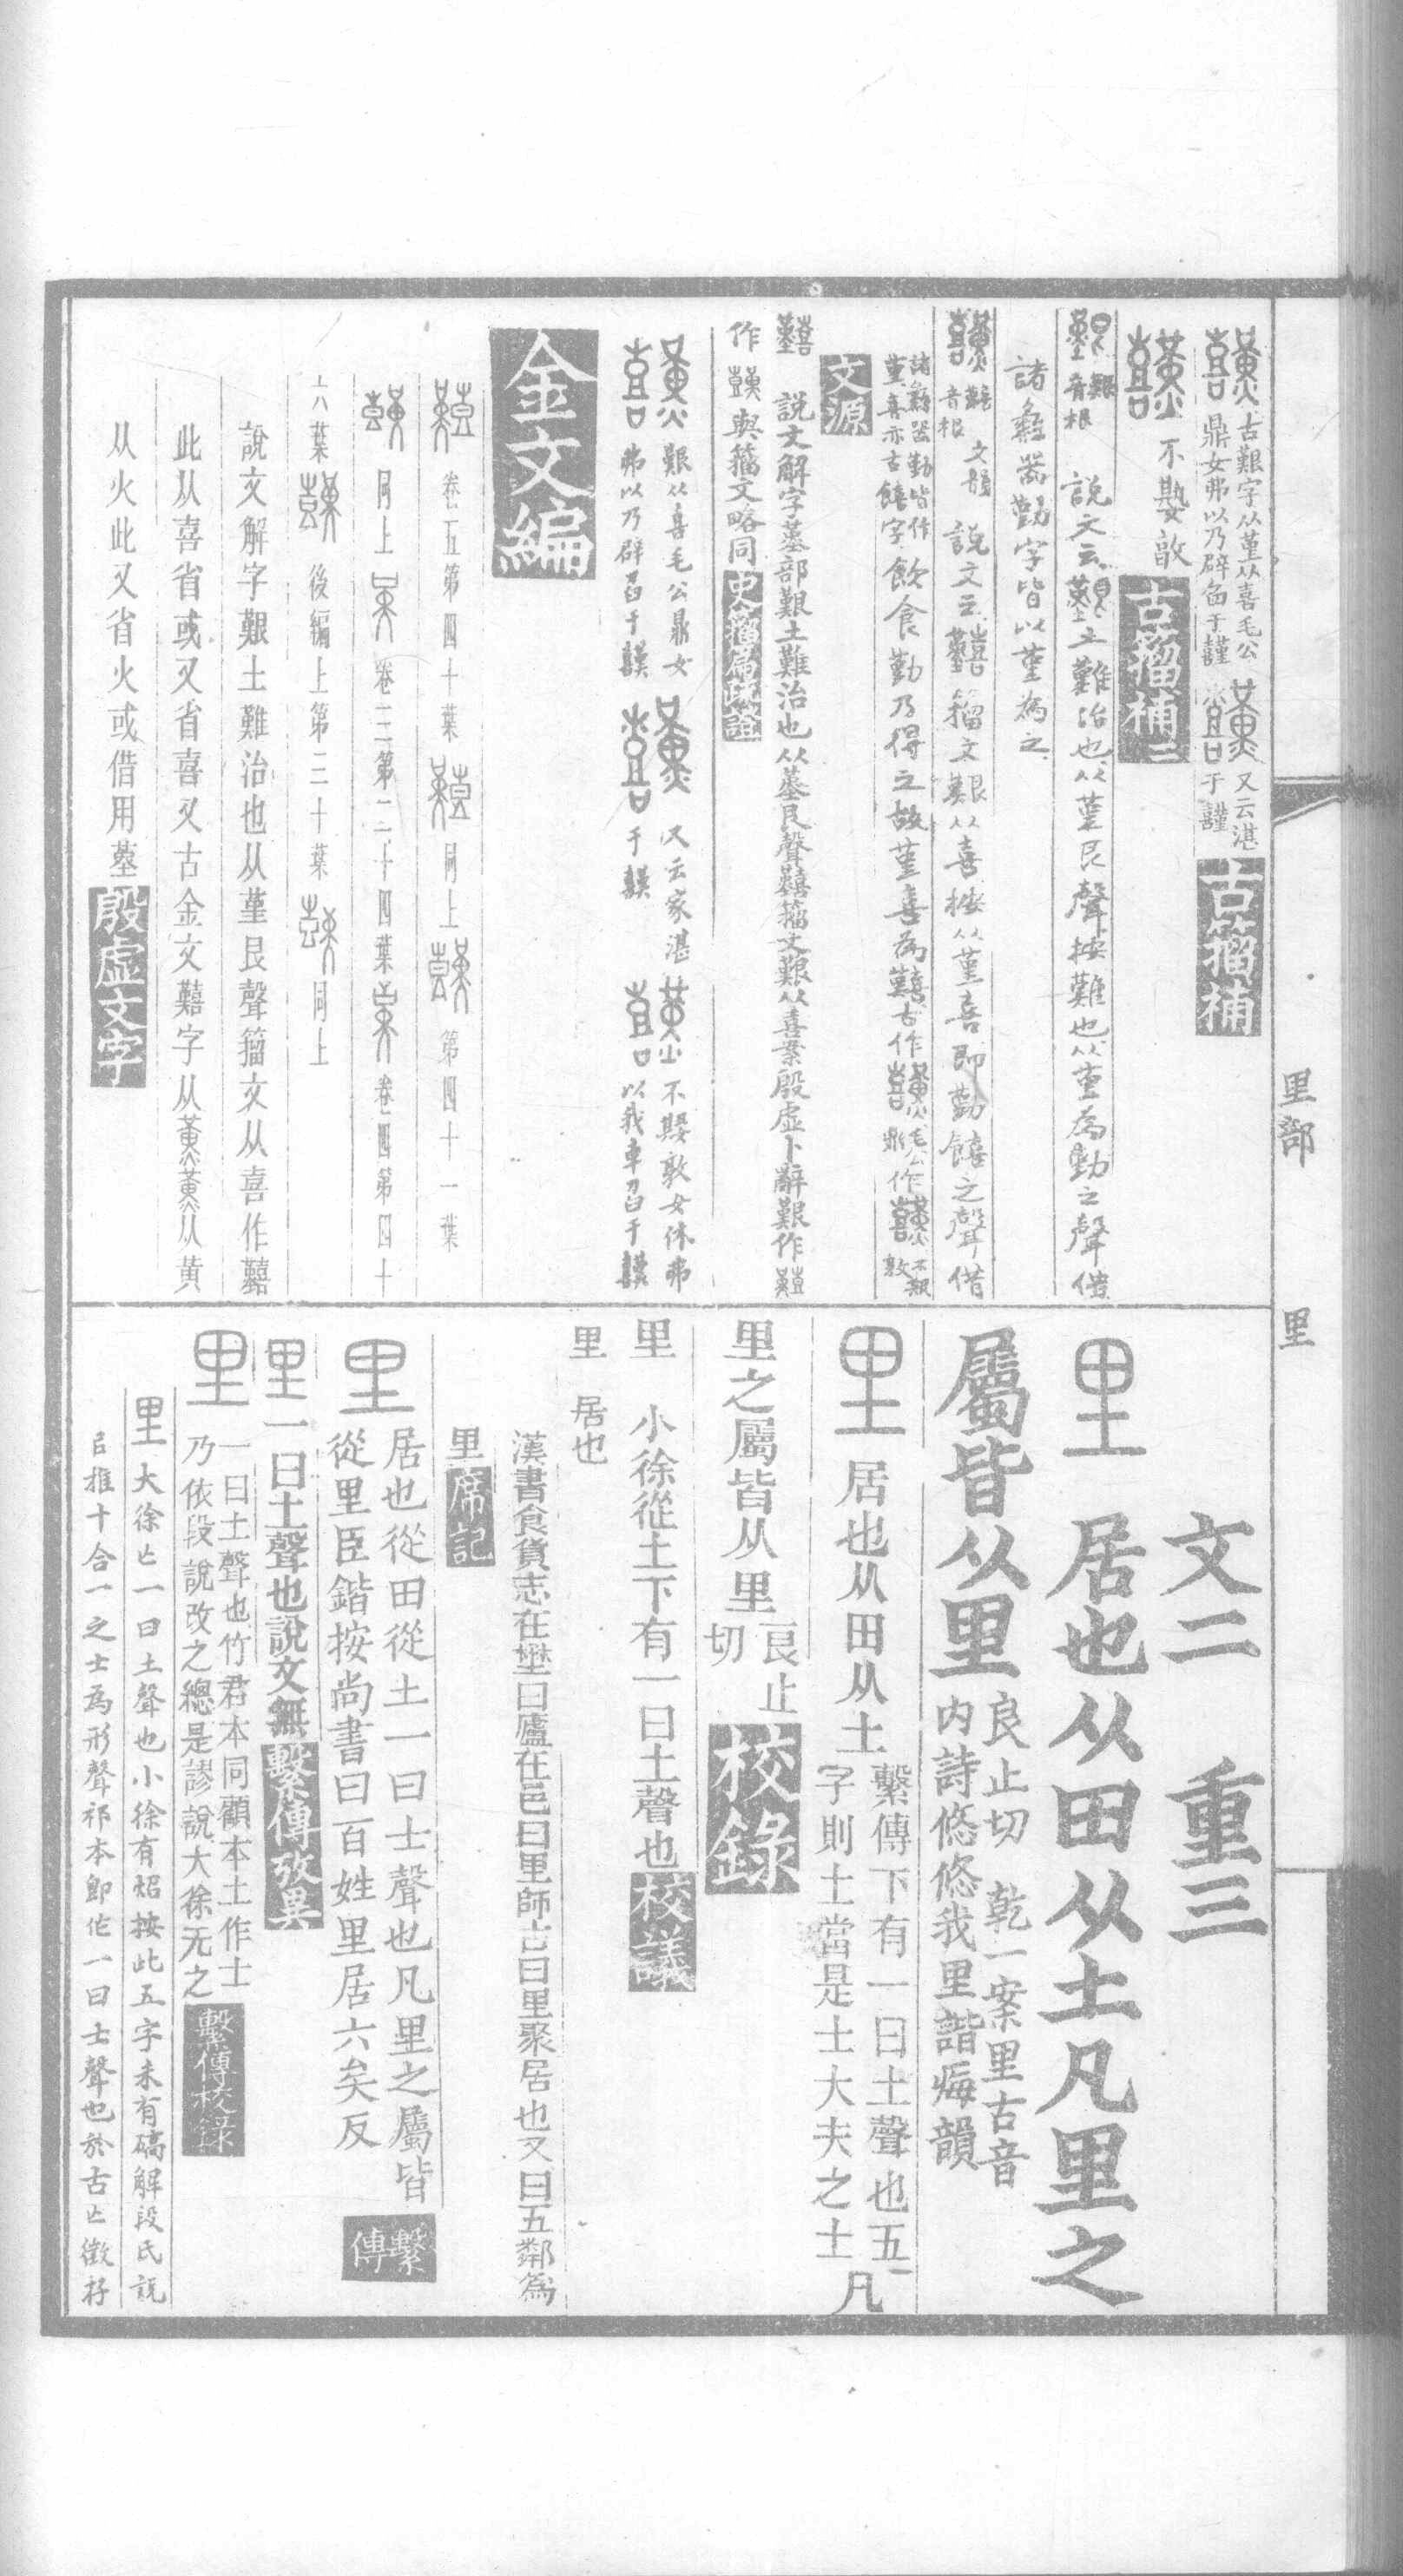 里部　里
古艱字从堇从喜毛公
鼎女弗以乃辟圅于囏
又云湛
于囏
古籀補
不𡢁敦
古籀補
艱
音根
說文云艱土難治也从堇艮聲按難也从堇為勤之聲借
諸彝器勤字皆以堇為之
音根
說文云囏籀文艱从喜按从堇喜即勤饎之聲借
諸彝器勤皆作
堇喜亦古饎字
飲食勤乃得之故堇喜為囏古作
毛公
鼎
作
不𡢁
敦
文源
囏　說文解字堇部艱土難治也从堇艮聲囏籀文艱从喜案殷虛卜辭艱作
作　與籀文略同史籀篇疏證
艱从喜毛公鼎女
弗以乃辟圅于囏
又云家湛
于囏
不𡢁敦女休弗
以我車圅于囏
金文編
卷五第四十葉　同上　第四十一葉
同上　卷三第二十四葉　卷四第四十
六葉　後編上第三十葉　同上
說文解字艱土難治也从堇艮聲籀文从喜作囏
此从喜省或又省喜又古金文囏字从　从黃
从火此又省火或借用堇殷虛文字
文二　重三
里　居也从田从土凡里之
屬皆从里
良止切　乾一案里古音
內詩悠悠我里諧痗韻
里　居也从田从土
繫傳下有一曰土聲也五
字則土當是士大夫之士
凡
里之屬皆从里
良止
切
校錄
里　小徐從土下有一曰土聲也校議
里　居也
漢書食貨志在壄曰廬在邑曰里師古曰里聚居也又曰五鄰為
里席記
里
居也從田從土一曰士聲也凡里之屬皆
從里臣鍇按尚書曰百姓里居六矣反
繫傳
里一曰土聲也說文無繫傳攷異
里
一曰土聲也竹君本同顧本土作士
乃依段說改之總是謬說大徐无之
繫傳校錄
里大徐亡一曰土聲也小徐有炤按此五字未有礭解段氏說
㠯推十合一之士為形聲祁本即作一曰士聲也於古亡徵存